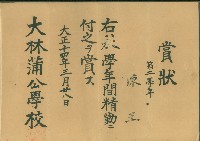 賞狀
第二學年
右ハ學年間精勤ニ
付之ヲ賞ス
大正十四年三月廿八日
大林蒲公學校